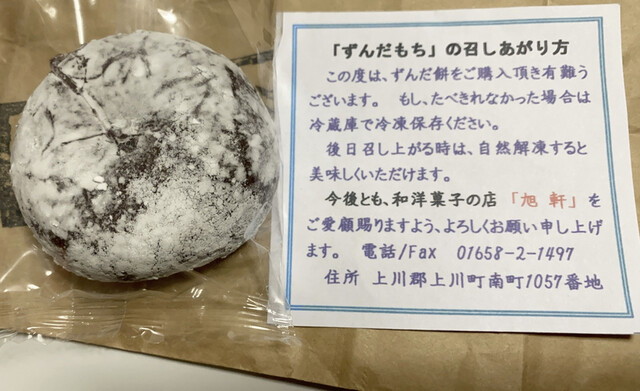 「ずんだもち」の召しあがり方
この度は、ずんだ餅をご購入頂き有難う
ございます。 もし、たべきれなかった場合は
冷蔵庫で冷凍保存ください。
後日召し上がる時は、自然解凍すると
美味しくいただけます。
今後とも、和洋菓子の店 「旭 軒」を
ご愛顧賜りますよう、よろしくお願い申し上げ
ます。 電話/Fax 01658-2-1497
住所 上川郡上川町南町1057番地